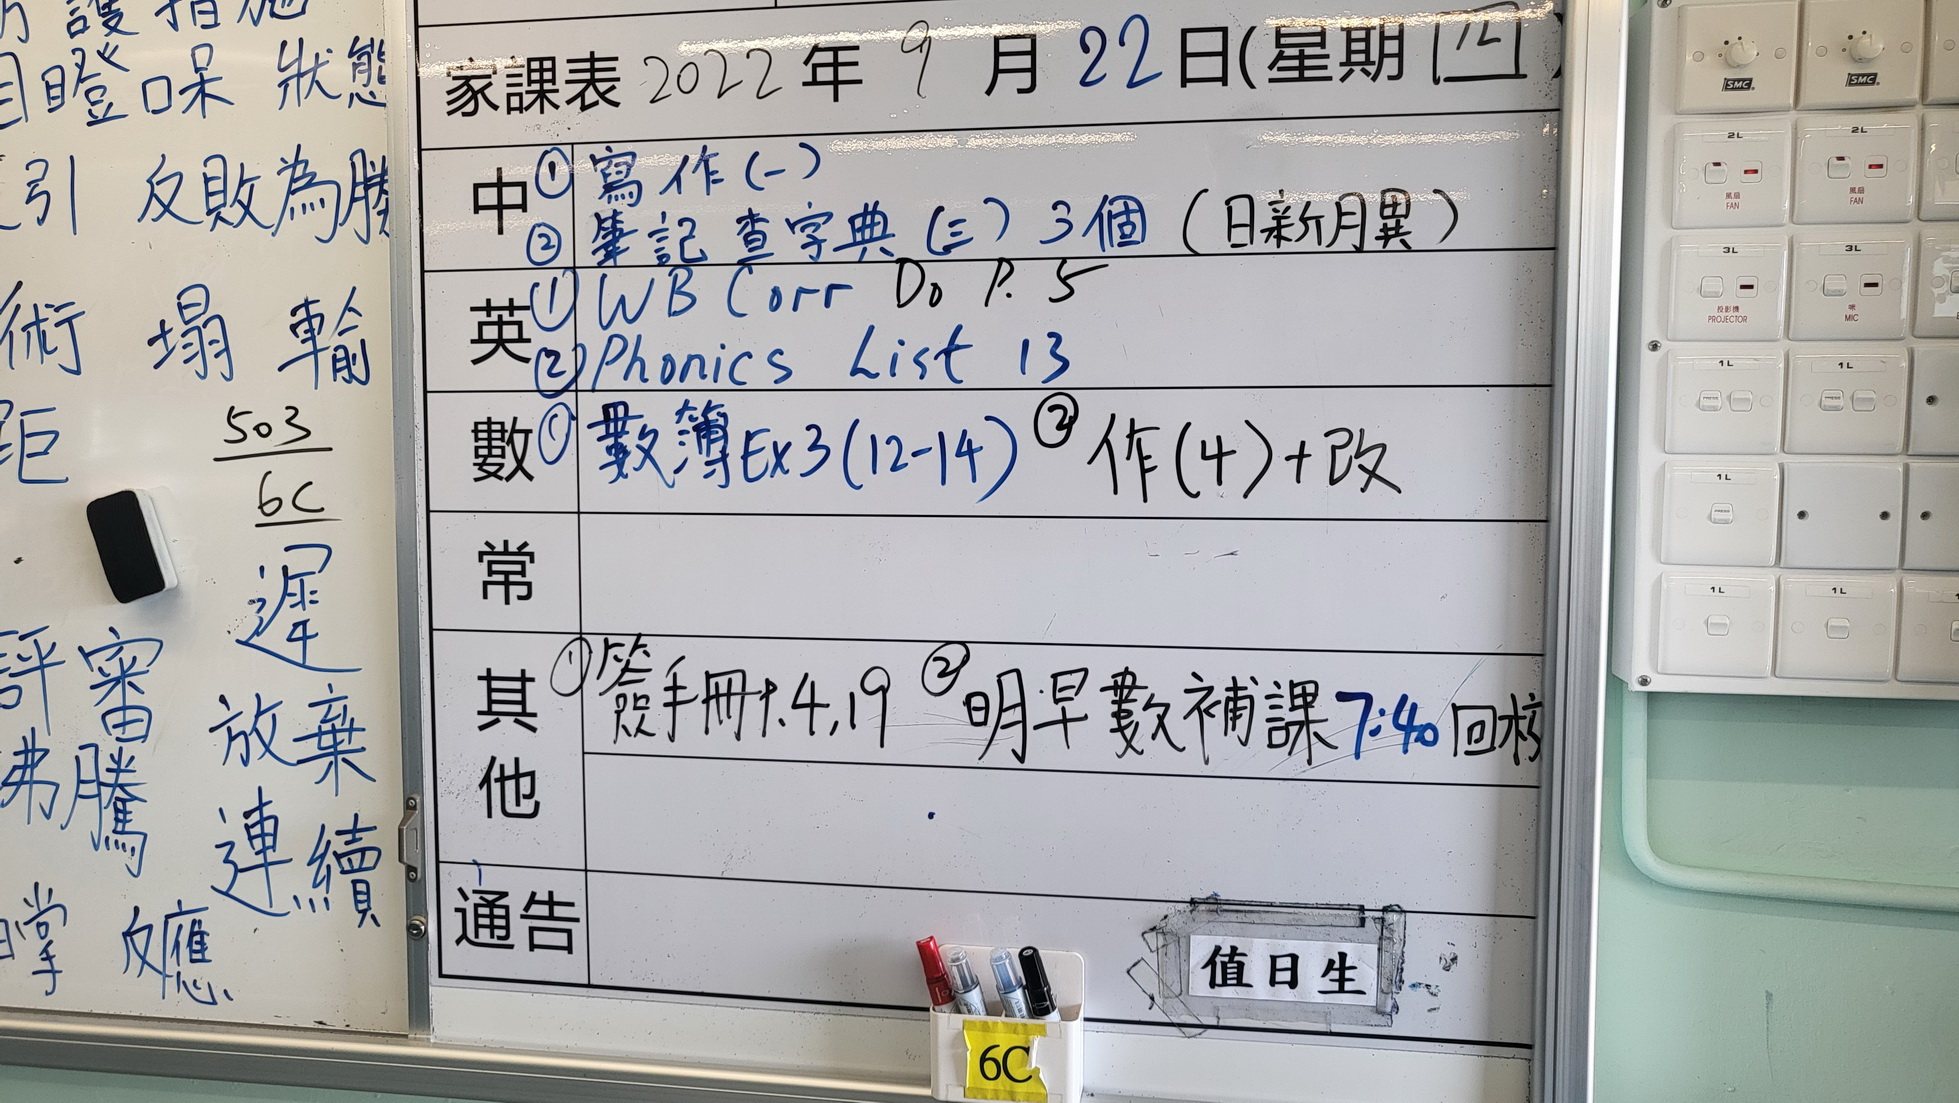 護措施
目瞪口呆 狀態
引 反敗為勝
術 塌 輸
距
503
6C
遲
評審
放棄
沸騰
連續
反應
家課表 2022年 9月 22日(星期四)
中 ① 寫作(一)
② 筆記 查字典(三) 3個 (日新月異)
英 ① WB Corr Do P. 5
② Phonics List 13
數 ① 數簿Ex3(12-14) ② 作(4)+改
常
其他 ① 簽手冊P.4,19 ② 明早數補課7:40回校
通告
值日生
6C
SMC
SMC
2L
2L
風扇
FAN
風扇
FAN
3L
3L
投影機
PROJECTOR
咪
MIC
1L
1L
PRESS PRESS
PRESS
1L
PRESS
1L
1L